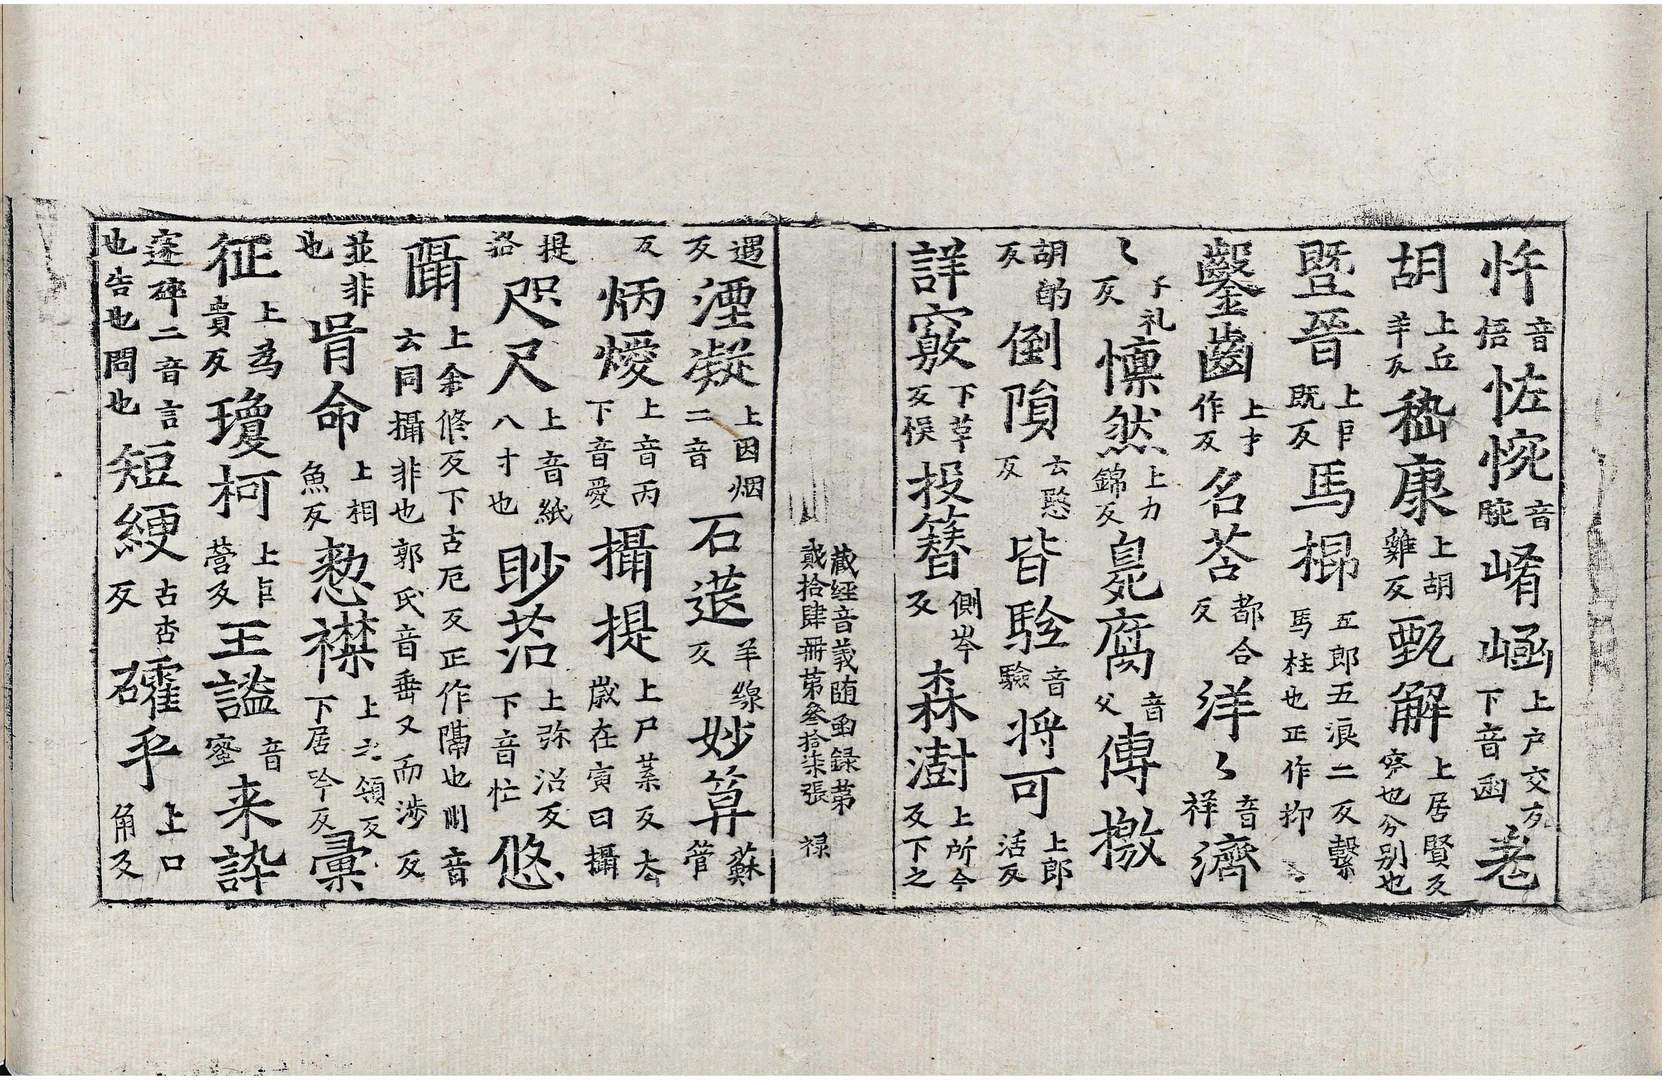 忤音悟恠惋音腕崤嵓上户交反下音函老
胡上丘羊反嵇康上胡雞反甄解上居賢反察也分别也
暨晉上巨既反馬枊五郎五浪二反繫馬柱也正作抑
鑿齒上才作反名荅都合反洋〻音祥濟
〻子礼反懍然上力錦反㲋腐音父傳檄
胡的反倒隕云愍反皆騐音驗將可上郎活反
詳竅下草反悞投簪側岑反森澍上所今反下之
藏經音義随函録第貳拾肆冊第叁拾柒張 禄
遇反湮凝上因烟二音石莚羊線反妙筭蘇管
反炳㷡上音丙下音愛攝提上尸葉反太歲在寅曰攝
提格咫尺上音紙八寸也眇茫上弥沼反下音忙悠
㒤上余修反下古厄反正作隔也川音云同攝非也郭氏音垂又而涉反
並非也胥命上相魚反懃襟上亠領反下居吟反彙
征上為貴反瓊柯上巨營反王謐音蜜来誶
邃碎二音言也告也問也短綆古杏反礭乎上口角反